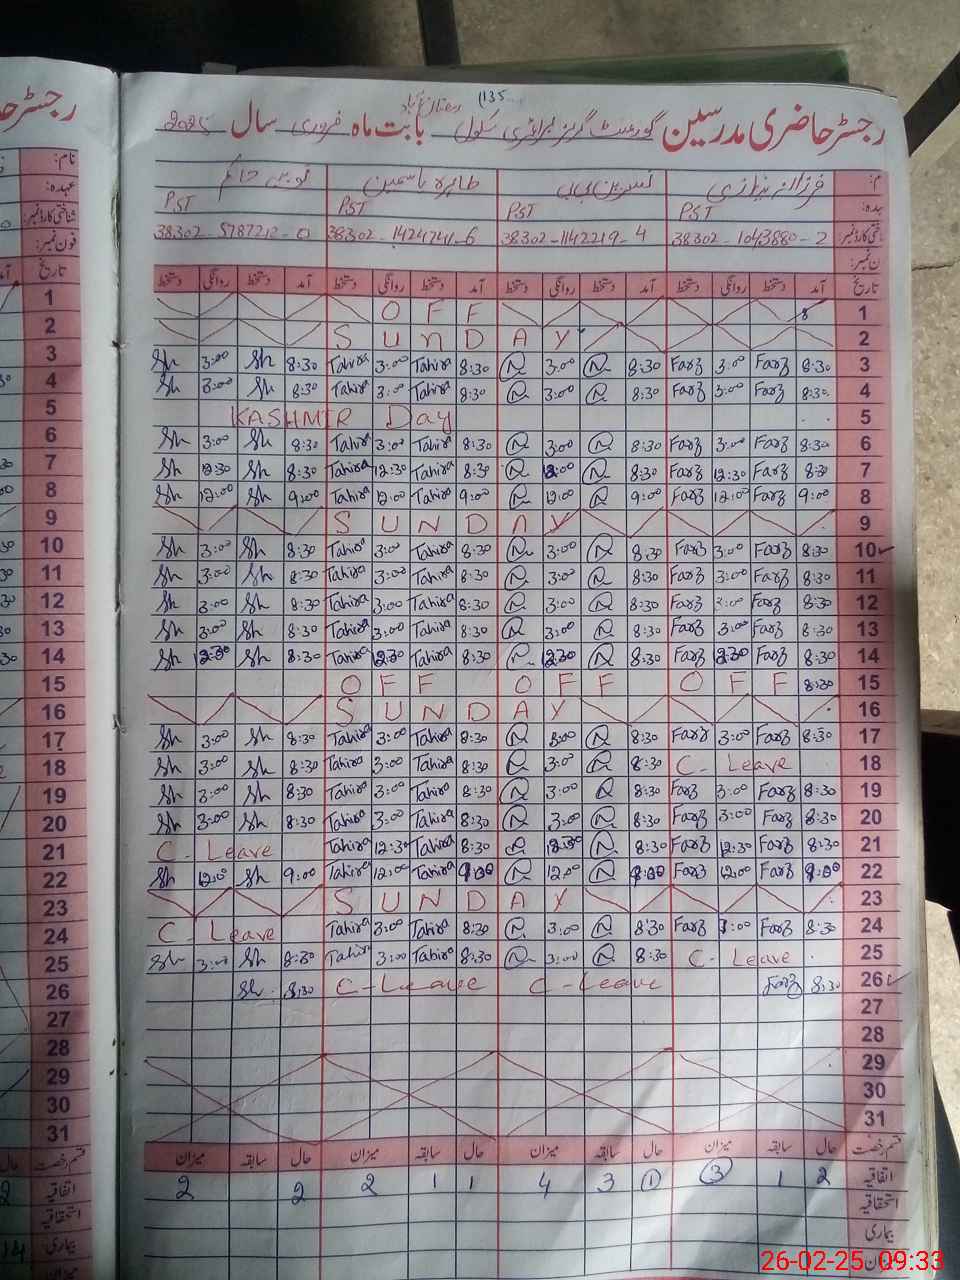 (135
رجسٹر حاضری مدرسین گورنمنٹ گرلز پرائمری سکول بابت ماہ فروری سال 2025
طاہرہ یاسمین
PST PST PST PST
38302-5787212-0 38302-1424741-6 38302-1142219-4 38302-1043880-2 شناختی کارڈ نمبر
دستخط روانگی دستخط آمد دستخط روانگی دستخط آمد دستخط روانگی دستخط آمد دستخط روانگی دستخط آمد تاریخ
OFF 8 1
SUNDAY 2
Sh 3:00 Sh 8:30 Tahira 3:00 Tahira 8:30 3:00 8:30 Farz 3:00 Farz 8:30 3
Sh 3:00 Sh 8:30 Tahira 3:00 Tahira 8:30 3:00 8:30 Farz 3:00 Farz 8:30 4
KASHMIR Day 5
Sh 3:00 Sh 8:30 Tahira 3:00 Tahira 8:30 3:00 8:30 Farz 3:00 Farz 8:30 6
Sh 12:30 Sh 8:30 Tahira 12:30 Tahira 8:30 8:30 Farz 12:30 Farz 8:30 7
Sh 12:00 Sh 9:00 Tahira 12:00 Tahira 9:00 12:00 9:00 Farz 12:00 Farz 9:00 8
SUNDAY 9
Sh 3:00 Sh 8:30 Tahira 3:00 Tahira 8:30 3:00 8:30 Farz 3:00 Farz 8:30 10
Sh 3:00 Sh 8:30 Tahira 3:00 Tahira 8:30 3:00 8:30 Farz 3:00 Farz 8:30 11
Sh 3:00 Sh 8:30 Tahira 3:00 Tahira 8:30 3:00 8:30 Farz 3:00 Farz 8:30 12
Sh 3:00 Sh 8:30 Tahira 3:00 Tahira 8:30 3:00 8:30 Farz 3:00 Farz 8:30 13
Sh 12:30 Sh 8:30 Tahira 12:30 Tahira 8:30 12:30 8:30 Farz 12:30 Farz 8:30 14
OFF OFF OFF 8:30 15
SUNDAY 16
Sh 3:00 Sh 8:30 Tahira 3:00 Tahira 8:30 3:00 8:30 Farz 3:00 Farz 8:30 17
Sh 3:00 Sh 8:30 Tahira 3:00 Tahira 8:30 3:00 8:30 C-Leave 18
Sh 3:00 Sh 8:30 Tahira 3:00 Tahira 8:30 3:00 8:30 Farz 3:00 Farz 8:30 19
Sh 3:00 Sh 8:30 Tahira 3:00 Tahira 8:30 3:00 8:30 Farz 3:00 Farz 8:30 20
C-Leave Tahira 12:30 Tahira 8:30 12:30 8:30 Farz 12:30 Farz 8:30 21
Sh 12:00 Sh 9:00 Tahira 12:00 Tahira 9:00 12:00 9:00 Farz 12:00 Farz 9:00 22
SUNDAY 23
C-Leave Tahira 3:00 Tahira 8:30 3:00 8:30 Farz 3:00 Farz 8:30 24
Sh 3:00 Sh 8:30 Tahira 3:00 Tahira 8:30 3:00 8:30 C-Leave 25
Sh 8:30 C-Leave C-Leave Farz 8:30 26
27
28
29
30
31
میزان سابقہ حال میزان سابقہ حال میزان سابقہ حال میزان سابقہ حال قسم رخصت
2 2 2 1 1 4 3 1 3 1 2 اتفاقیہ
استحقاقیہ
بیماری
میزان
26-02-25 09:33